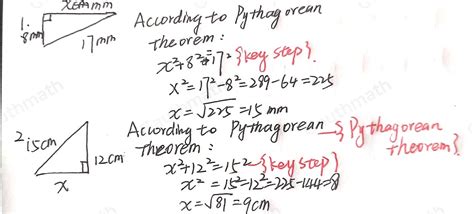 x mm
1.
8mm
17mm
According to Pythagorean
Theorem:
x²+8²=17² {key step}.
x²=17²-8²=289-64=225
x=√225=15mm
2
15cm
12cm
x
According to Pythagorean → {Pythagorean
Theorem: theorem}.
x²+12²=15² → {key step}
x²=15²-12²=225-144=8
x=√81=9cm